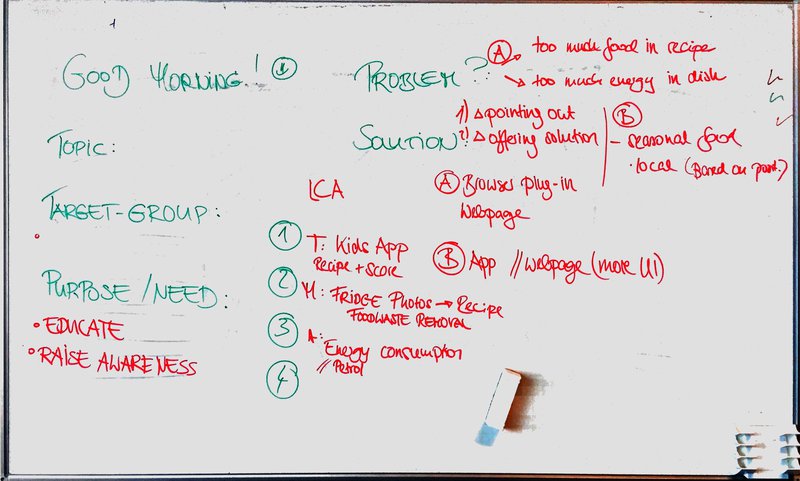 GOOD MORNING!
TOPIC:
TARGET-GROUP:
PURPOSE/NEED:
• EDUCATE
• RAISE AWARENESS
PROBLEM?:
A too much food in recipe
↳ too much energy in dish
SOLUTION:
1) △ pointing out
2) △ offering solution
B
- seasonal food
· local (Based on
A Browser plug-in
Webpage
B App // Webpage (more UI)
LCA
1 T: Kids App
Recipe + Score
2 M: FRIDGE PHOTOS → Recipe
FOODWASTE REMOVAL
3 A:
Energy consumption
// Petrol
4